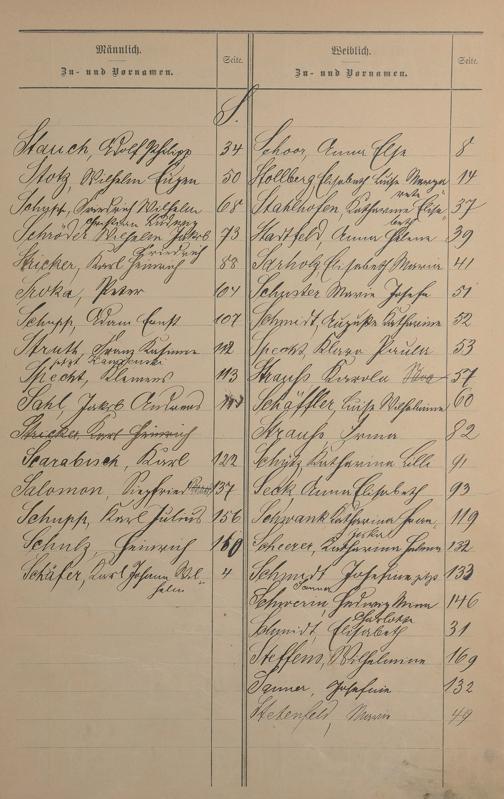 Männlich.
Zu- und Vornamen.
Seite.
Weiblich.
Zu- und Vornamen.
Seite.
S.
Stauch, Adolf Philipp 34
Stotz, Wilhelm Eugen 50
Schupp, Friedrich Wilhelm 68
Christian Ludwig
Schröder Wilhelm Jakob 73
Friedrich
Stricker, Karl Heinrich 88
Sroka, Peter 104
Schupp, Adam Ernst 107
Struth, Franz 112
Specht, Klemens 113
Sahl, Jakob Andreas
Stricker, Karl Heinrich
Scarabisch, Karl 122
Salomon, Siegfried 137
Schupp, Karl Julius 156
Schulz, Heinrich 160
Schäfer, Karl Johann Wil- 4
helm
Schoor, Anna Else 8
Stollberg, Elisabeth Luise Marga 14
rete
Stahlhofen, Katharina Elisa 37
beth
Stadtfeld, Anna Helene 39
Sarholz Elisabeth Maria 41
Schuster Maria Josefa 51
Schmidt, Auguste Katharine 52
Specht, Klara Paula 53
Strauss Karola 57
Schäffler, Luise Wilhelmine 60
Strauss Irma 82
Schütz Katharina Lilli 91
Seck, Anna Elisabeth 93
Schwank Katharina 119
Scheerer, Katharina Helena 132
Schmidt Josefine 133
Schwerin, Hedwig Anna 146
Charlotte
Schmidt, Elisabeth 31
Steffens, Wilhelmine 169
Sauner, Josefine 132
Stetenfeld, Maria 49